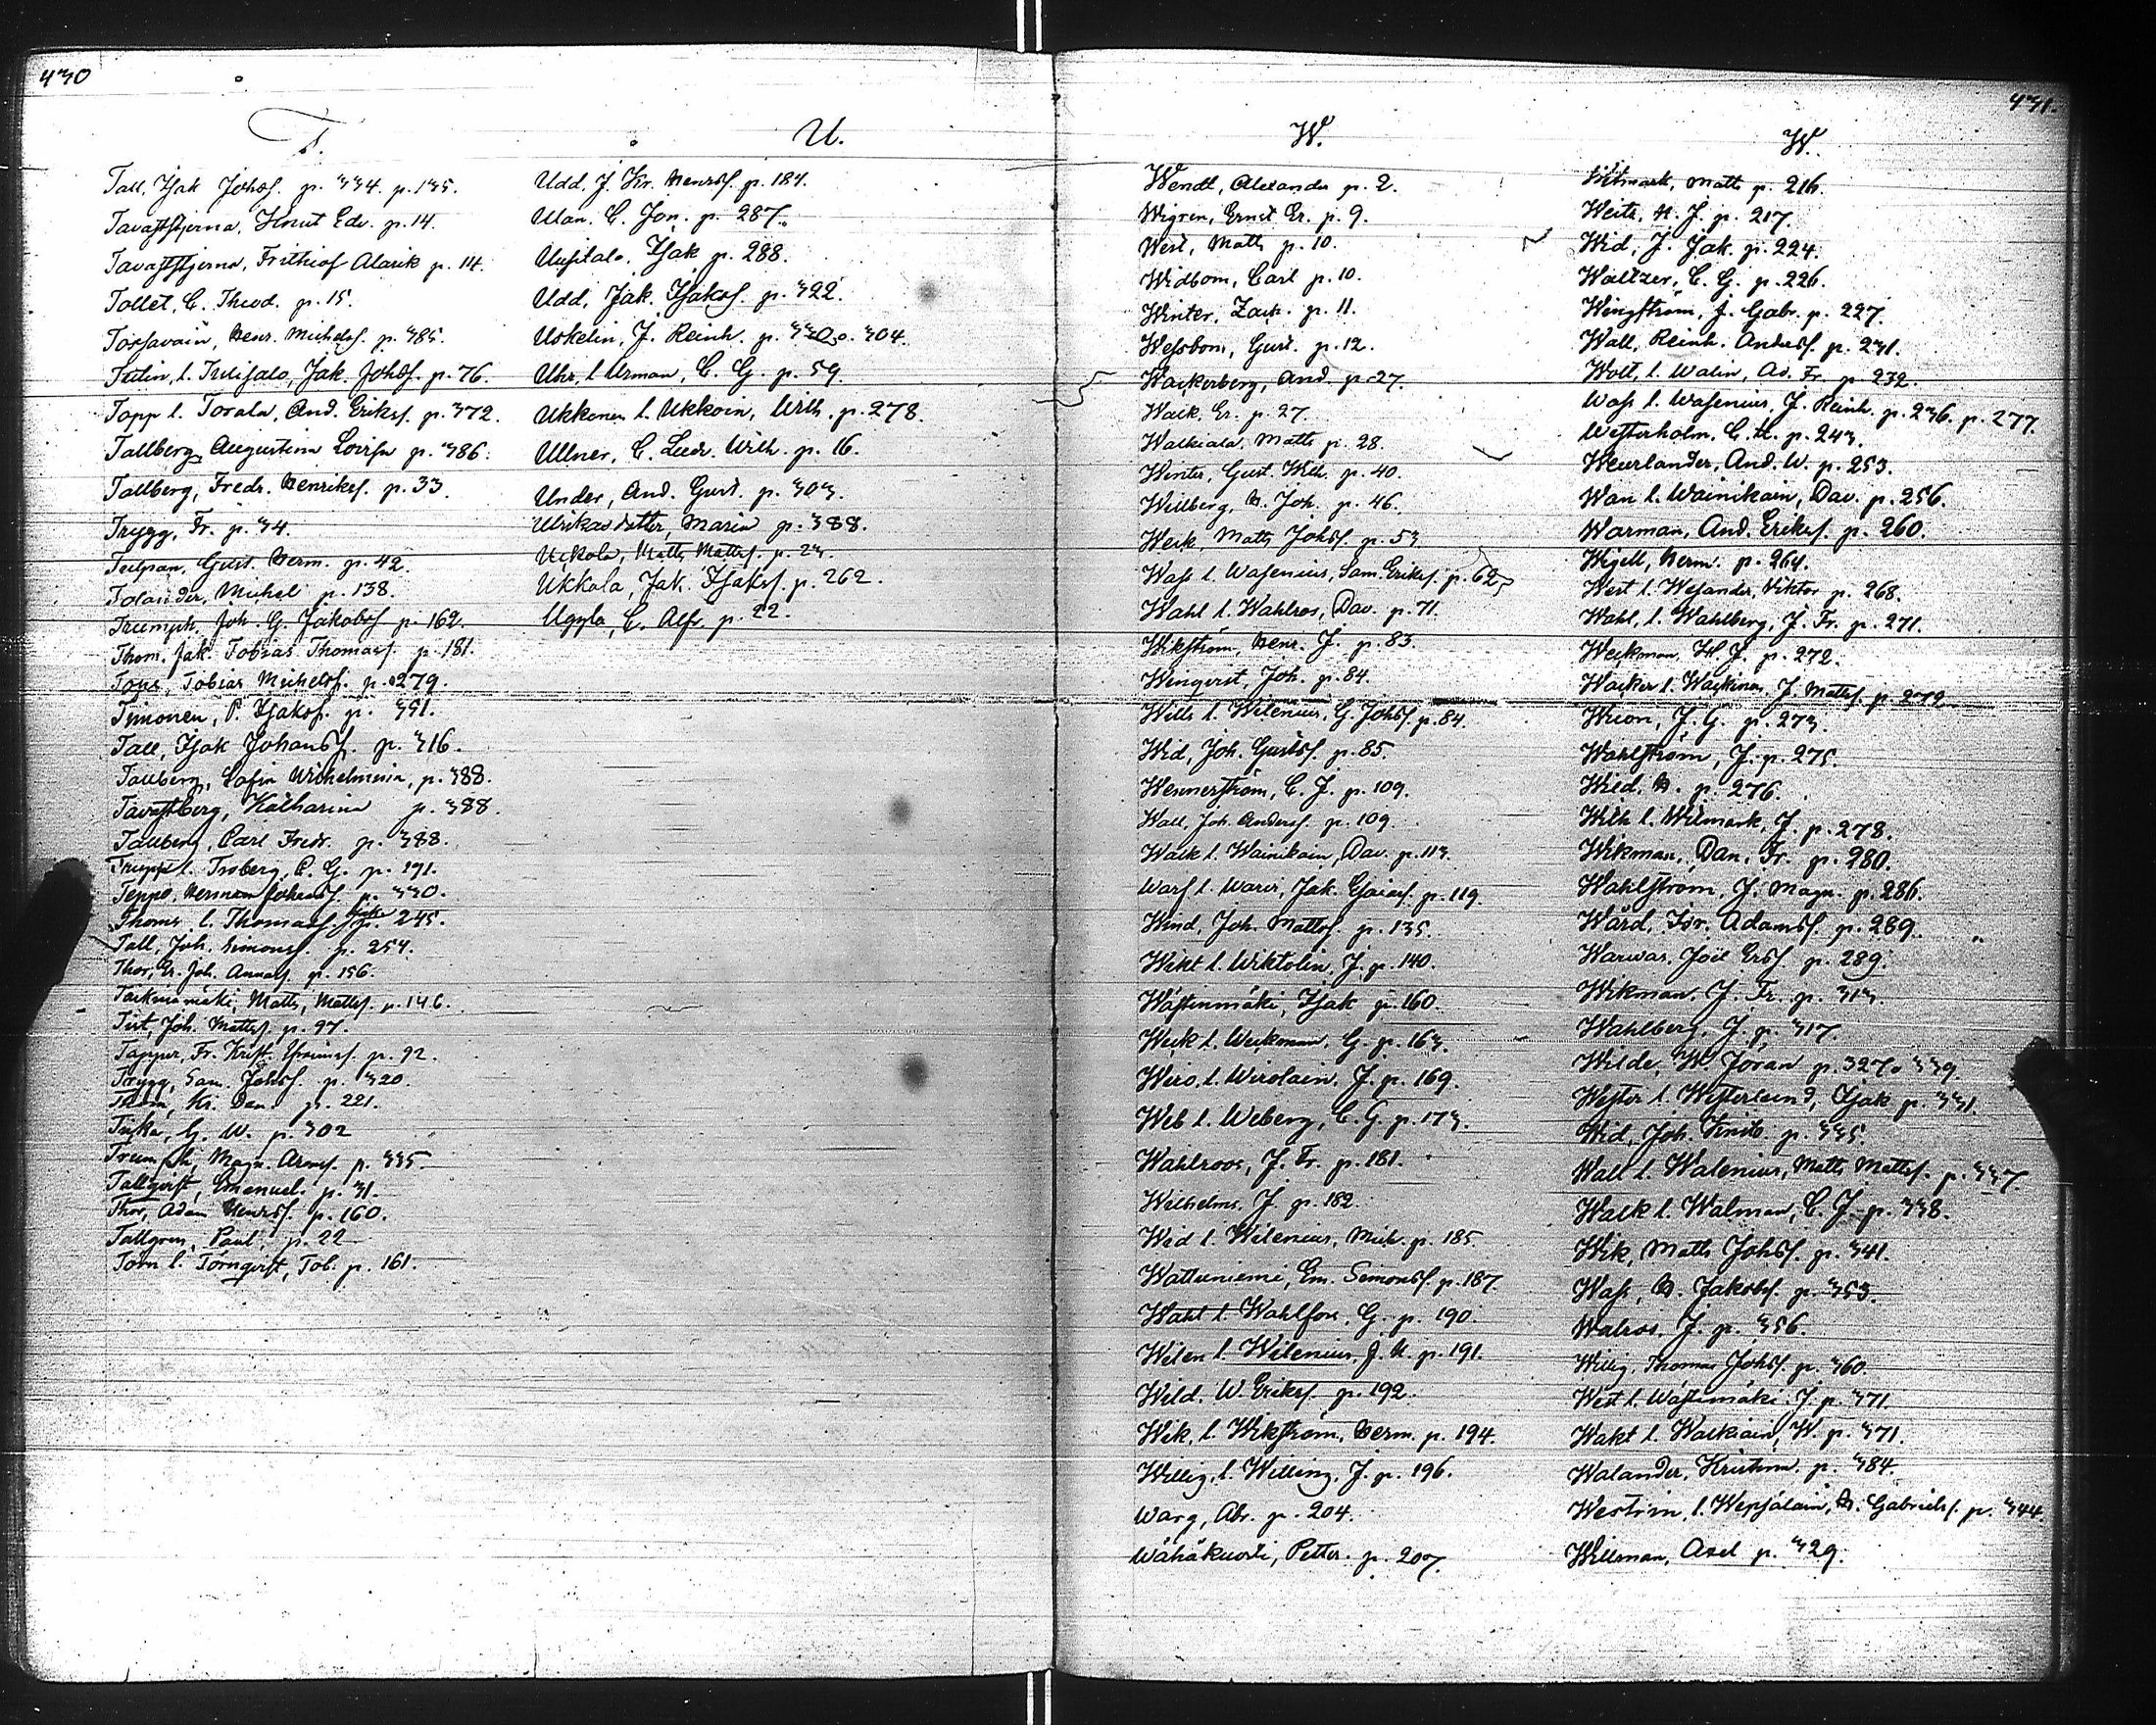 430
T.
Tall, Isak Johss. p. 334. p. 135.
Tavaststjerna, Knut Edv. p. 14.
Tavaststjerna, Frithiof Alarik p. 14.
Tollet, C. Theod. p. 15.
Torsavain, Henr. Michelss. p. 385.
Tulin, l. Tulisalo, Jak. Johss. p. 76.
Topp l. Torala, And. Erikss. p. 372.
Tallberg, Augustina Lovisa p. 386.
Tallberg, Fredr. Henrikss. p. 33.
Trygg, Fr. p. 34.
Gust. Herm. p. 42.
Tolander, Michel p. 138.
Triumph, Joh. G. Jakobss. p. 162.
Thom, Jak. Tobias Thomass. p. 181.
Tobias Michelss. p. 279.
Timonen, P. Isakss. p. 351.
Tall, Isak Johanss. p. 316.
Tallberg, Sofia Wilhelmina, p. 388.
Tavastberg, Katharina p. 388.
Tallberg, Carl Fredr. p. 388.
Trupp l. Troberg, C. G. p. 191.
Teppo, Herman Johanss. p. 330.
Thoms l. Thomass. p. 245.
Tall, Joh. Simonss. p. 254.
Thor, Er. Joh. Annass. p. 156.
Matts Mattss. p. 146.
Joh. Mattss. p. 97.
Fr. Krist. p. 92.
Trygg, Sam. Johss. p. 320.
Thom, Kr. Dan. p. 221.
G. W. p. 302
Triumph, Magn. p. 335.
Tallqvist, Emanuel. p. 31.
Thor, Adam Henrss. p. 160.
Tallgren, Paul, p. 22
Törn l. Törnqvist, Tob. p. 161.
U.
Udd, J. Kr. Henrss. p. 184.
Ulan. C. Jon. p. 287.
Uusitalo, Isak p. 288.
Udd, Jak. Isakss. p. 322.
Uskelin, J. Reinh. p. 330. o. 304.
Uhr, l. Urman, C. G. p. 59.
Ukkonen l. Ukkoin, Wilh. p. 278.
Ullner, C. Ludv. Wilh. p. 16.
Under, And. Gust. p. 303.
Ulrikasdotter, Maria p. 388.
Uckola, Matts Mattss. p. 23.
Ukkola, Jak. Isakss. p. 262.
Uggla, C. Alfr. p. 22.
431.
W.
Wendt, Alexander p. 2.
Wigren, Ernst Er. p. 9.
West, Matts p. 10.
Widbom, Carl p. 10.
Winter, Zach. p. 11.
Wessbom, Gust. p. 12.
Wackerberg, And. p. 27.
Walk, Er. p. 27.
Walkiala, Matts p. 28.
Winter, Gust. Wilh. p. 40.
Willberg, H. Joh. p. 46.
Weck, Matts Johss. p. 53.
Wass l. Wasenius, Sam. Erikss. p. 62
Wahl l. Wahlros, Dav. p. 71.
Wikström, Henr. J. p. 83.
Wenqvist, Joh. p. 84.
Wills l. Wilenius, G. Johss. p. 84.
Wid, Joh. Gustss. p. 85.
Wennerström, C. J. p. 109.
Wall, Joh. Anderss. p. 109.
Walk l. Wainikain, Dav. p. 113.
Warf l. Jak. Esaiass. p. 119.
Wind, Joh. Mattss. p. 135.
Wikt l. Wiktolin, J. p. 140.
Wästinmäki, Isak p. 160.
Weck l. Weckman, G. p. 163.
Wiro, l. Wirolain, J. p. 169.
Web l. Weberg, C. G. p. 173.
Wahlroos, J. Fr. p. 181.
Wilhelms, J. p. 182.
Wid l. Wilenius, Mich. p. 185.
Wattuniemi, Em. Simonss. p. 187.
Wahl l. Wahlfors, G. p. 190.
Wilen l. Wilenius, J. U. p. 191.
Wild. W. Erikss. p. 192.
Wik, l. Wikström, Herm. p. 194.
Willig, l. Willing, J. p. 196.
Warg, Abr. p. 204.
Wähäkuosti, Petter. p. 207.
W.
Witmark, Matts p. 216.
Weitz, H. J. p. 217.
Wid, J. Jak. p. 224.
Waltzer, C. G. p. 226.
Wengström, J. Gabr. p. 227.
Wall, Reinh. Anderss. p. 231.
Wolt, l. Walin, Ad. Fr. p. 232.
Wass l. Wasenius, J. Reinh. p. 236. p. 277.
Westerholm, C. H. p. 243.
Weurlander, And. W. p. 253.
Wan l. Wainikain, Dav. p. 256.
Warman, And. Erikss. p. 260.
Wigell, Herm. p. 264.
West l. Wesander, Viktor p. 268.
Wahl, l. Wahlberg, J. Fr. p. 271.
Weckman, J. p. 272.
Wacker l. Wackinen, J. Mattss. p. 272
J. G. p. 273.
Wahlström, J. p. 275.
Wied. H. p. 276.
Wilk l. Wilmark, J. p. 278.
Wikman, Dan. Fr. p. 280.
Wahlström, J. Magn. p. 286.
Wärd, Isr. Adamss. p. 289.
Warwas, Joël Erss. p. 289.
Wikman, J. Fr. p. 313.
Wahlberg, J. p. 317.
Wilde, W. Jöran p. 327. o. 339.
Wester l. Westerlund, Isak p. 331.
Wid, Joh. p. 335.
Wall l. Walenius, Matts Mattss. p. 337
Walk l. Walman, C. J. p. 338.
Wik, Matts Johss. p. 341.
Wass, H. Jakobss. p. 353.
Walros, J. p. 356.
Willig, Thomas Johss. p. 360.
West l. Wästimäki, J. p. 371.
Wakt l. Walkiain, W. p. 371.
Walander, Kristina. p. 384.
Westrin, l. Wepsäläin, H. Gabrielss. p. 344.
Willman, Axel p. 329.